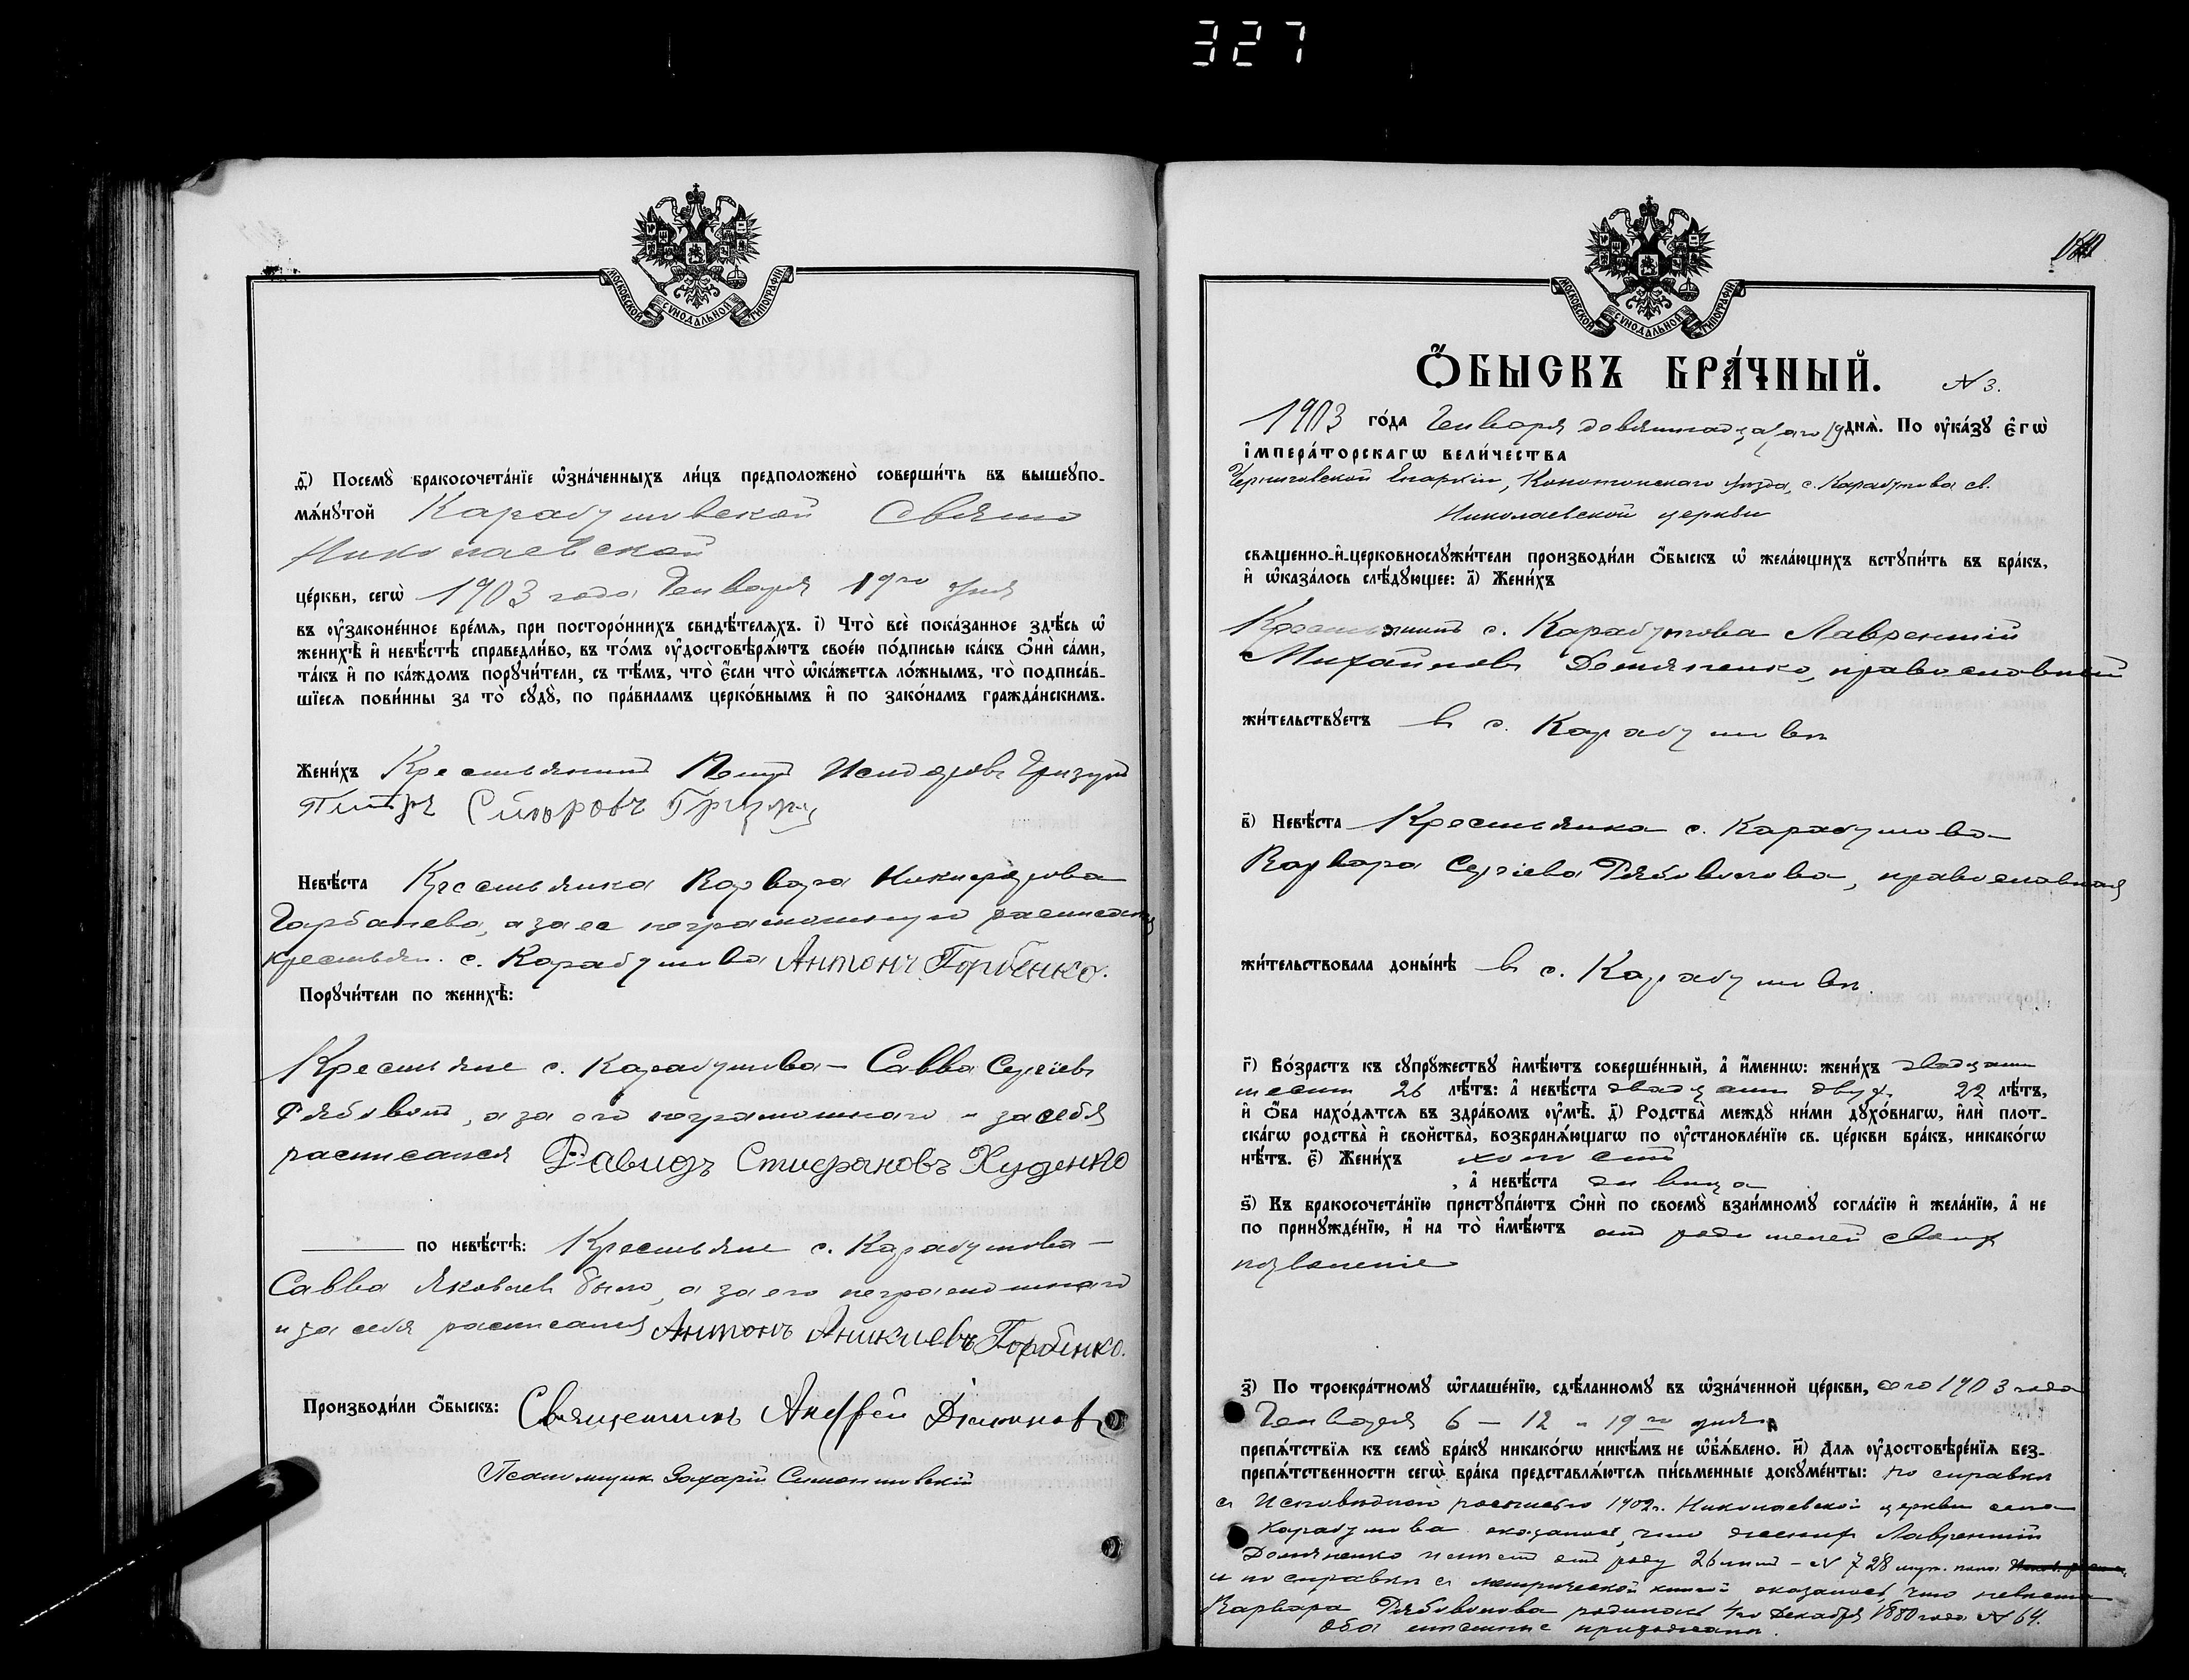 327
МОСКОВСКОЙ СУНОДАЛЬНОЙ ТИПОГРАФІИ
д҃) Посемꙋ̀ бракосочета́нїе ѡ҆зна́ченныхъ ли́цъ предположено̀ соверши́ть въ вышеꙋпо-
мѧ́нꙋтой Карабутовской Свято
Николаевской
це́ркви, сегѡ̀ 1903 года Генваря 19го дня
въ ᲂу҆законе́нное вре́мѧ, при посторо́ннихъ свидѣ́телѧхъ. і҃) Что̀ всѐ пока́занное здѣ́сь ѡ҆
женихѣ̀ и҆ невѣ́стѣ справедли́во, въ то́мъ ᲂу҆достовѣрѧ́ютъ свое́ю по́дписью ка́къ ѻ҆нѝ са́ми,
та́къ и҆ по ка́ждомъ порꙋчи́тели, съ тѣ́мъ, что̀ є҆́сли что̀ ѡ҆ка́жетсѧ ло́жнымъ, то̀ подписа́в-
шїесѧ пови́нны за то̀ сꙋдꙋ̀, по пра́виламъ церко́внымъ и҆ по зако́намъ гражда́нскимъ.
Жени́хъ Крестьянинъ Петръ Исидоровъ Гризунъ
Питръ Сидоровъ Гризун
Невѣ́ста Крестьянка Варвара Никифорова
Горбанева, а за ее неграмотную расписался
крестьян. с. Карабутова Антонъ Горбенко.
Порꙋчи́тели по женихѣ̀:
Крестьяне с. Карабутова – Савва Сергіевъ
Рябовол, а за его неграмотнаго и за себя
расписался Давидъ Стифановъ Худенко
по невѣ́стѣ: Крестьяне с. Карабутова –
Савва Яковлев Было, а за его неграмотнаго
и за себя расписался Антонъ Аникиевъ Горбенко.
Производи́ли ѻ҆́быскъ: Священникъ Андрей
Псаломщик Захарій Симонтовскій
МОСКОВСКОЙ СУНОДАЛЬНОЙ ТИПОГРАФІИ
Ѻ҆́БЫСКЪ БРА́ЧНЫЙ. № 3.
1903 го́да Генваря девятнадцатаго 19 днѧ̀. По ᲂу҆ка́зꙋ є҆гѡ̀
і҆мпера́торскагѡ вели́чества
Черниговской Епархіи, Конотопскаго уѣзда, с. Карабутова св.
Николаевской церкви
свѧще́нно-и҆-церковнослꙋжи́тели производи́ли ѻ҆́быскъ ѡ҆ жела́ющихъ встꙋпи́ть въ бра́къ,
и҆ ѡ҆каза́лось слѣ́дꙋющее: а҃) Жени́хъ
Крестьянинъ с. Карабутова Лаврентій
Михайловъ Демяненко, православный
жи́тельствꙋетъ в с. Карабутовѣ
в҃) Невѣ́ста Крестьянка с. Карабутова
Варвара Сергіева Рябоволова, православная
жи́тельствовала доны́нѣ в с. Карабутовѣ.
г҃) Во́зрастъ къ сꙋпрꙋ́жествꙋ и҆мѣ́ютъ соверше́нный, а҆ и҆́меннѡ: жени́хъ двадцати
шести 26 лѣ́тъ: а҆ невѣ́ста двадцати двух 22 лѣ́тъ,
и҆ ѻ҆́ба нахо́дѧтсѧ въ здра́вомъ ᲂу҆мѣ̀. д҃) Родства̀ междꙋ̀ ни́ми дꙋхо́внагѡ, и҆лѝ плот-
ска́гѡ родства̀ и҆ свойства̀, возбранѧ́ющагѡ по ᲂу҆становле́нїю св. це́ркви бра́къ, никако́гѡ
нѣ́тъ. є҃) Жени́хъ холостъ
, а҆ невѣ́ста дѣвица
ѕ҃) Къ бракосочета́нїю пристꙋпа́ютъ ѻ҆нѝ по своемꙋ̀ взаи́мномꙋ согла́сїю и҆ жела́нїю, а҆ не
по принꙋжде́нїю, и҆ на то̀ и҆мѣ́ютъ отъ родителей своих
позволеніе
з҃) По троекра́тномꙋ ѡ҆глаше́нїю, сдѣ́ланномꙋ въ ѡ҆зна́ченной це́ркви, сего 1903 года
Генваря 6 – 12 и 19го дня
препѧ́тствїѧ къ семꙋ̀ бра́кꙋ никако́гѡ никѣ́мъ не ѡ҆б̾ѧ́влено. и҃) Длѧ ᲂу҆достовѣре́нїѧ без-
препѧ́тственности сегѡ̀ бра́ка представлѧ́ютсѧ пи́сьменные докꙋме́нты: по справкѣ
съ Исповѣдною росписью 1902 г. Николаевской церкви села
Карабутова оказалось, что жених Лаврентій
Демяненко имѣетъ отъ роду 26 лѣтъ – № 728 муж. пола
и по справкѣ съ метрической книгой оказалось, что невѣста
Варвара Рябоволова родилась 4го Декабря 1880 года № 64.
Оба